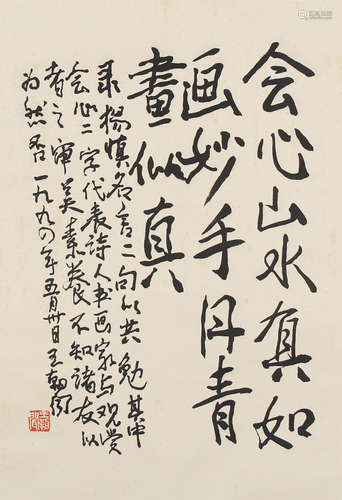 会心山水真如
画妙手丹青
畫似真
录杨慎名言二句以共勉其中
会心二字代表诗人书画家与观赏
者之审美素养不知诸友以
为然否一九九〇年五月卅日王朝闻